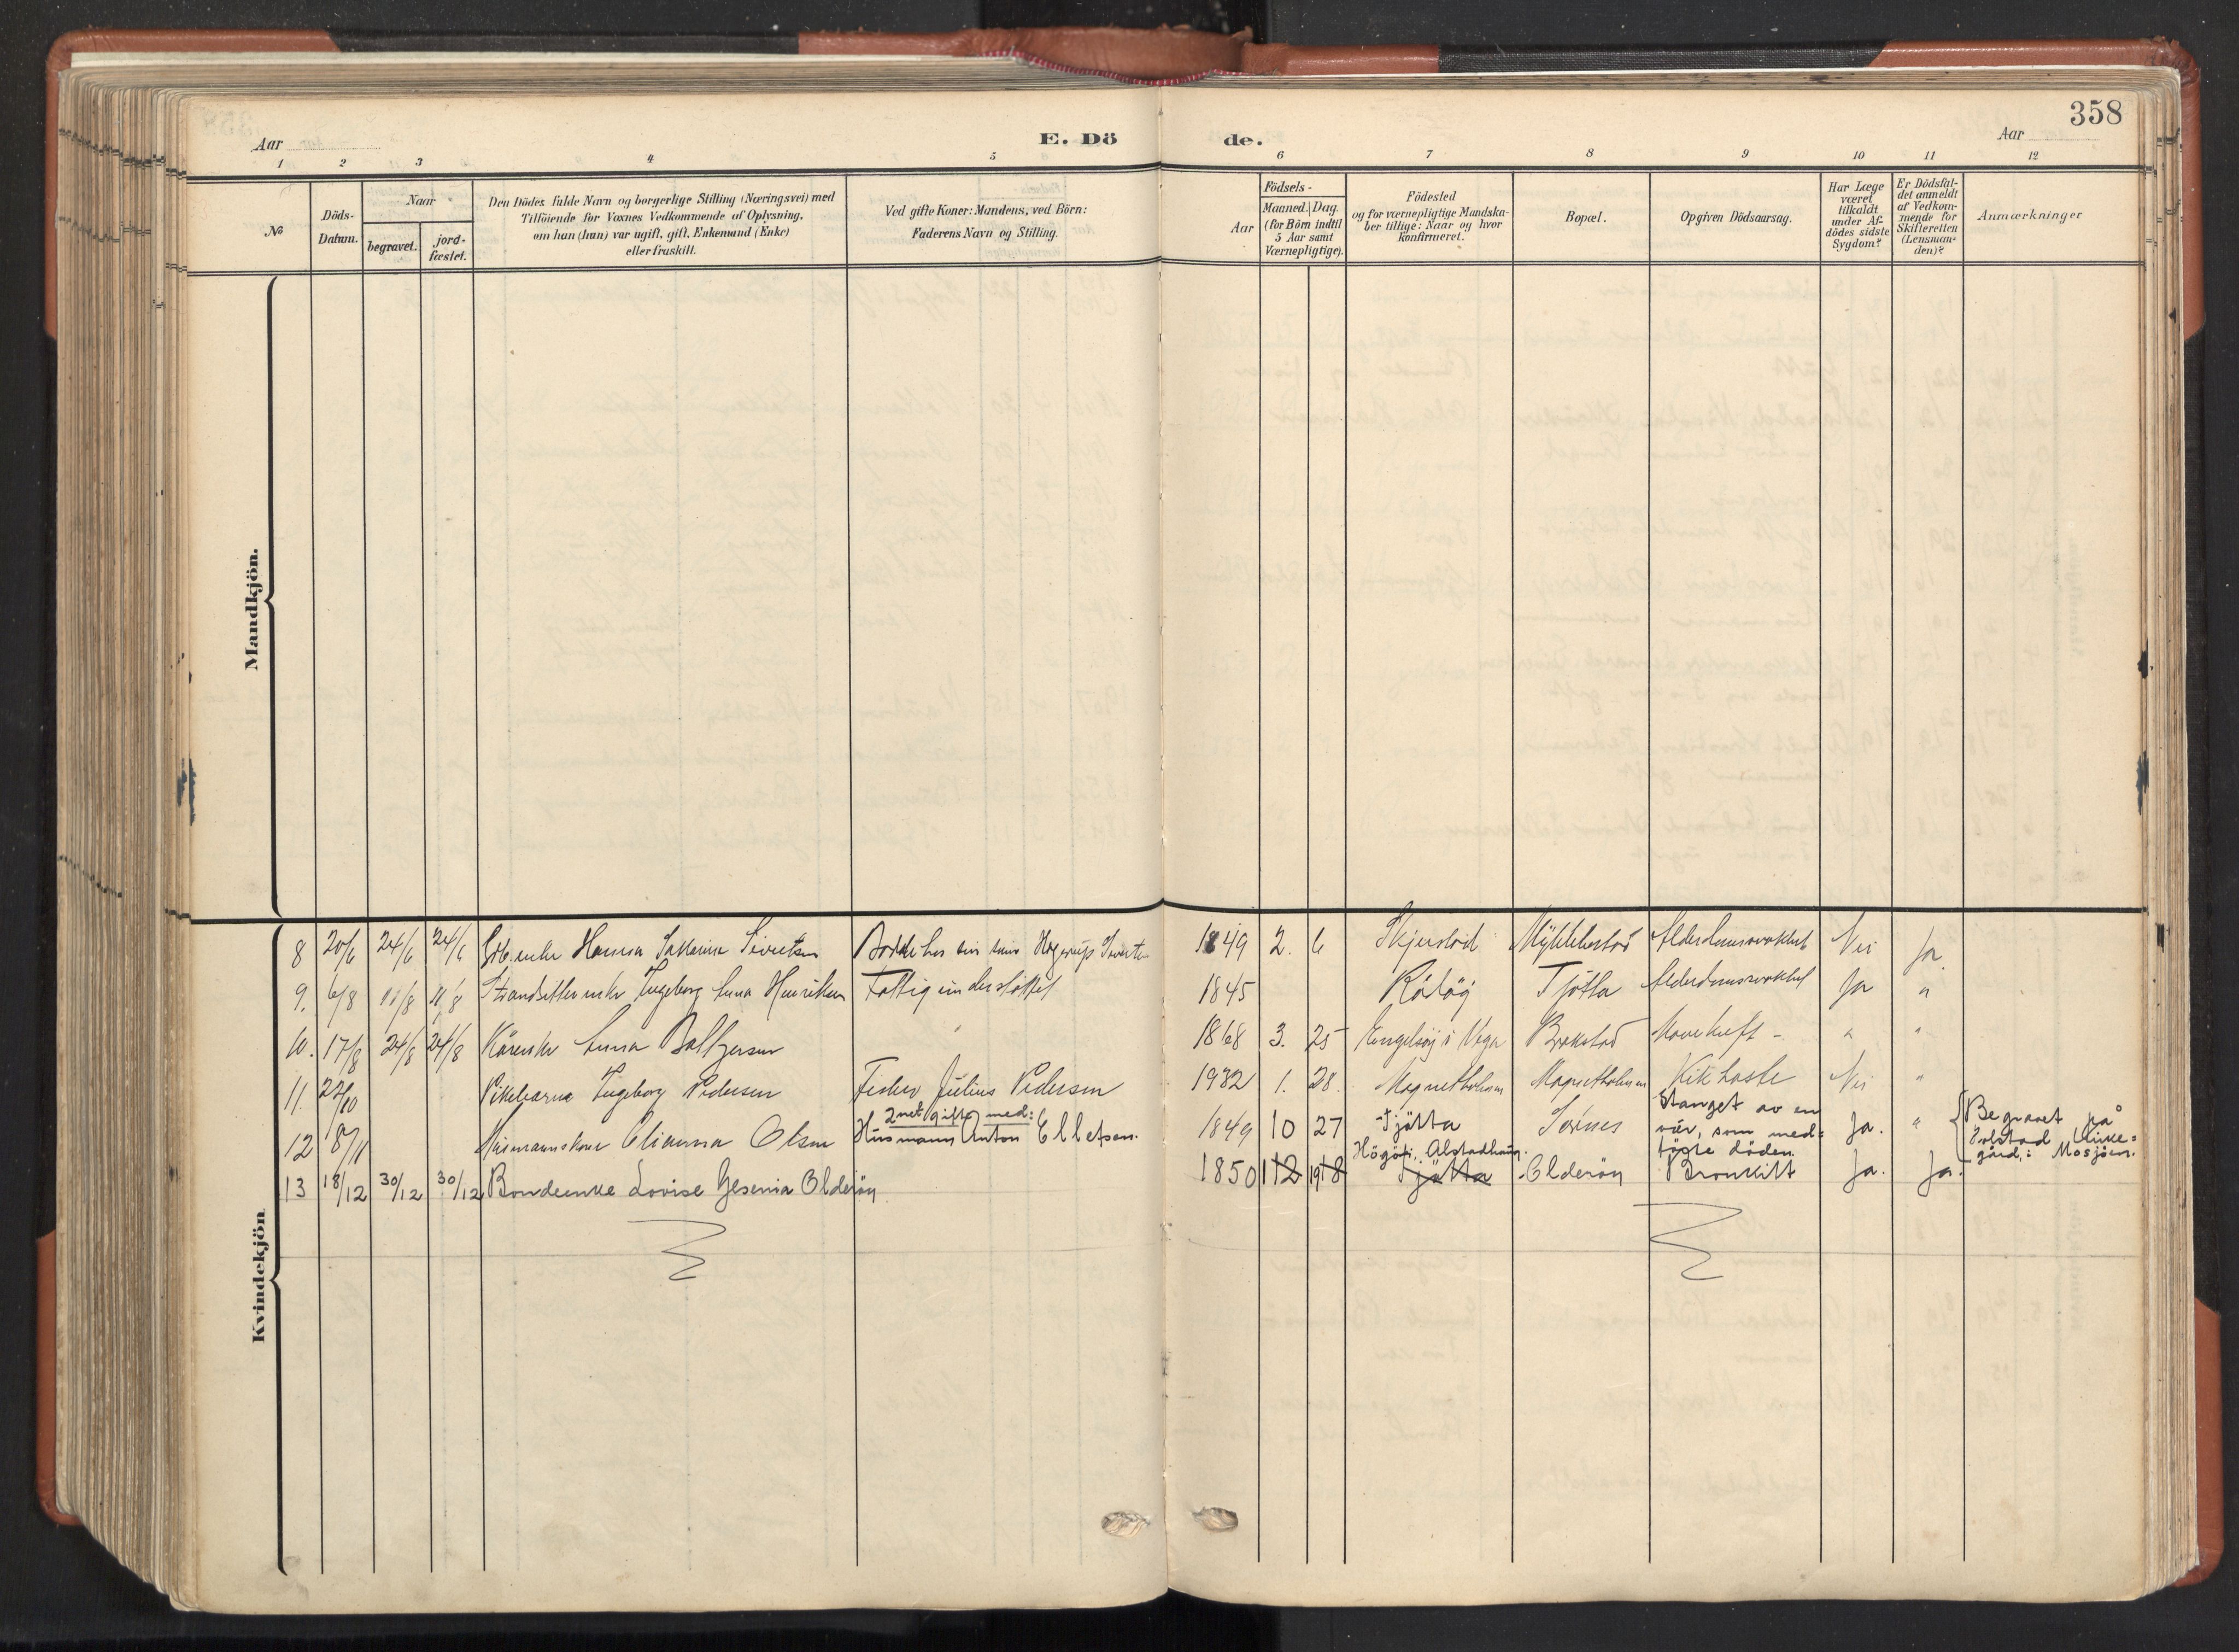 358
Aar
E. Dö
de.
Aar
1 2 3 4 5 6 7 8 9 10 11 12
No
Döds-
Datum.
Naar
begravet.
jord-
fæstet.
Den Dödes fulde Navn og borgerlige Stilling (Næringsvei) med
Tilföiende for Voxnes Vedkommende af Oplysning,
om han (hun) var ugift, gift, Enkemand (Enke)
eller fraskilt.
Ved gifte Koner: Mandens, ved Börn:
Faderens Navn og Stilling.
Aar
Födsels-
Maaned. Dag.
(for Börn indtil
5 Aar samt
Værnepligtige).
Födested
og for værnepligtige Mandska-
ber tillige: Naar og hvor
konfirmeret.
Bopæl.
Opgiven Dödsaarsag.
Har Læge
været
tilkaldt
under Af-
dödes sidste
Sygdom?
Er Dödsfal-
det anmeldt
af Vedkom-
mende for
Skifteretten
(Lensman-
den)?
Anmærkninger
Mandkjön.
Kvindekjön
8 20/6 24/6 24/6 Hanna Sivertsen 1849 2. 6 Skjerstad Myklebustad Alderdomssvakhet Nei Ja
9. 6/8 11/8 11/8 Ingeborg Anna Henriksen Fattigunderstöttet 1845 Rödöy Tjötta Alderdomssvakhet Ja "
10. 17/8 24/8 24/8 Kårenke Anna Baltzersen 1868 3. 25 i Vega Brakstad Mavekreft - " "
11. 22/10 Pikebarne Ingeborg Pedersen Fisker Julius Pedersen 1932 1. 28. Magnetholmen Magnetholmen Kikhoste Nei "
12 8/11 Husmannskone Olianna Olsen
2net gift med:
Husmann Anton Elletsen. 1849 10 27 Tjötta Sörnes
Stanget av en
vär, som med-
förte döden. Ja. "
Begravet på
Dolstad kirke=
gård, i Mosjöen.
13 18/12 30/12 30/12 Bondeenke Lovise Jesenia Olderöy 1850 12 18
Högöti, Alstadhaug.
Tjötta Olderöy Bronkitt Ja. Ja.